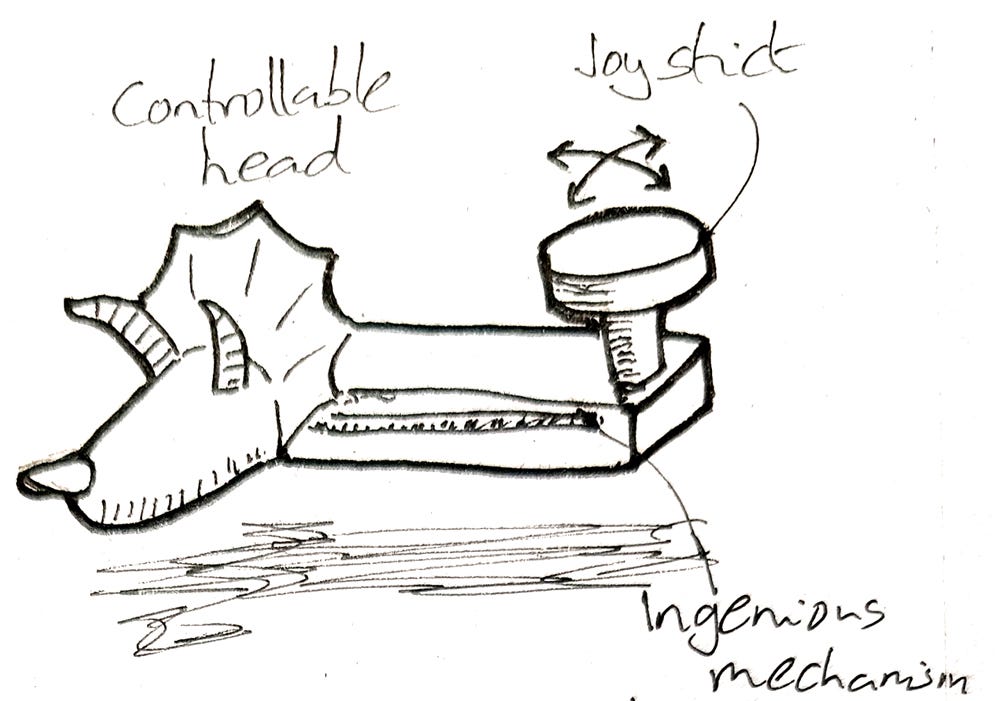 Controllable
head
Joystick
Ingenious
mechanism